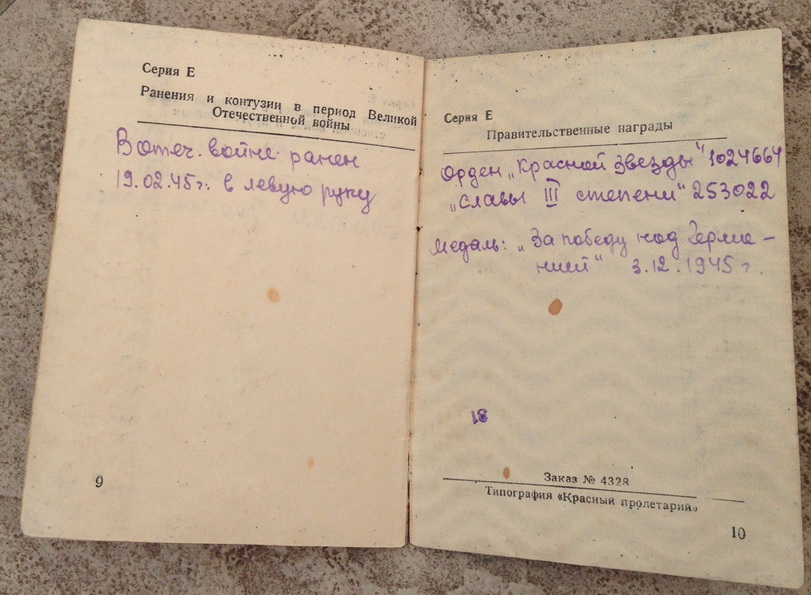 Серия Е
Ранения и контузии в период Великой
Отечественной войны
В отеч. войне ранен
19.02.45г. в левую руку
9
Серия Е
Правительственные награды
Орден „Красной Звезды" 1024664
„Славы III степени" 253022
Медаль: „За победу над Герма-
нией" 3.12.1945 г.
18
Заказ № 4328
Типография «Красный пролетарий»
10